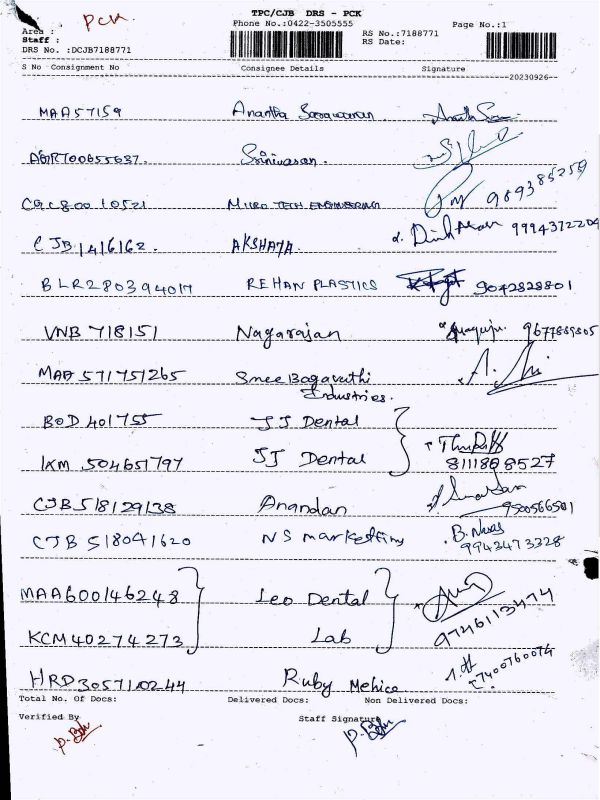 TPC/CJB DRS - PCK
PCK
Phone No.:0422-3505555 Page No.:1
Area :
Staff : RS No.:7188771
DRS No. :DCJB7188771 RS Date:
S No Consignment No Consignee Details Signature
20230926
MAA57159
AGR700655637. Srinivasan.
CGC80010521 MICRO TECH ENGINEERING 989385259
CJB1416162. AKSHAYA. 9994372204
BLR280394017 REHAN PLASTICS 9042828801
VNB 718151 Nagarajan
MAA 571751265 Sree Bagavathi
Industries.
BOD 401755 JJ Dental
IXM 504651797 JJ Dental 8111868527
CJB518129138 Anandan 9500566501
CJB 518041620 NS marketting B.
9943473328
MAA600146248 Leo Dental
KCM40274273 Lab 9746113474
HRD3057110244 Ruby 7400760074
Total No. Of Docs: Delivered Docs: Non Delivered Docs:
Verified By Staff Signature